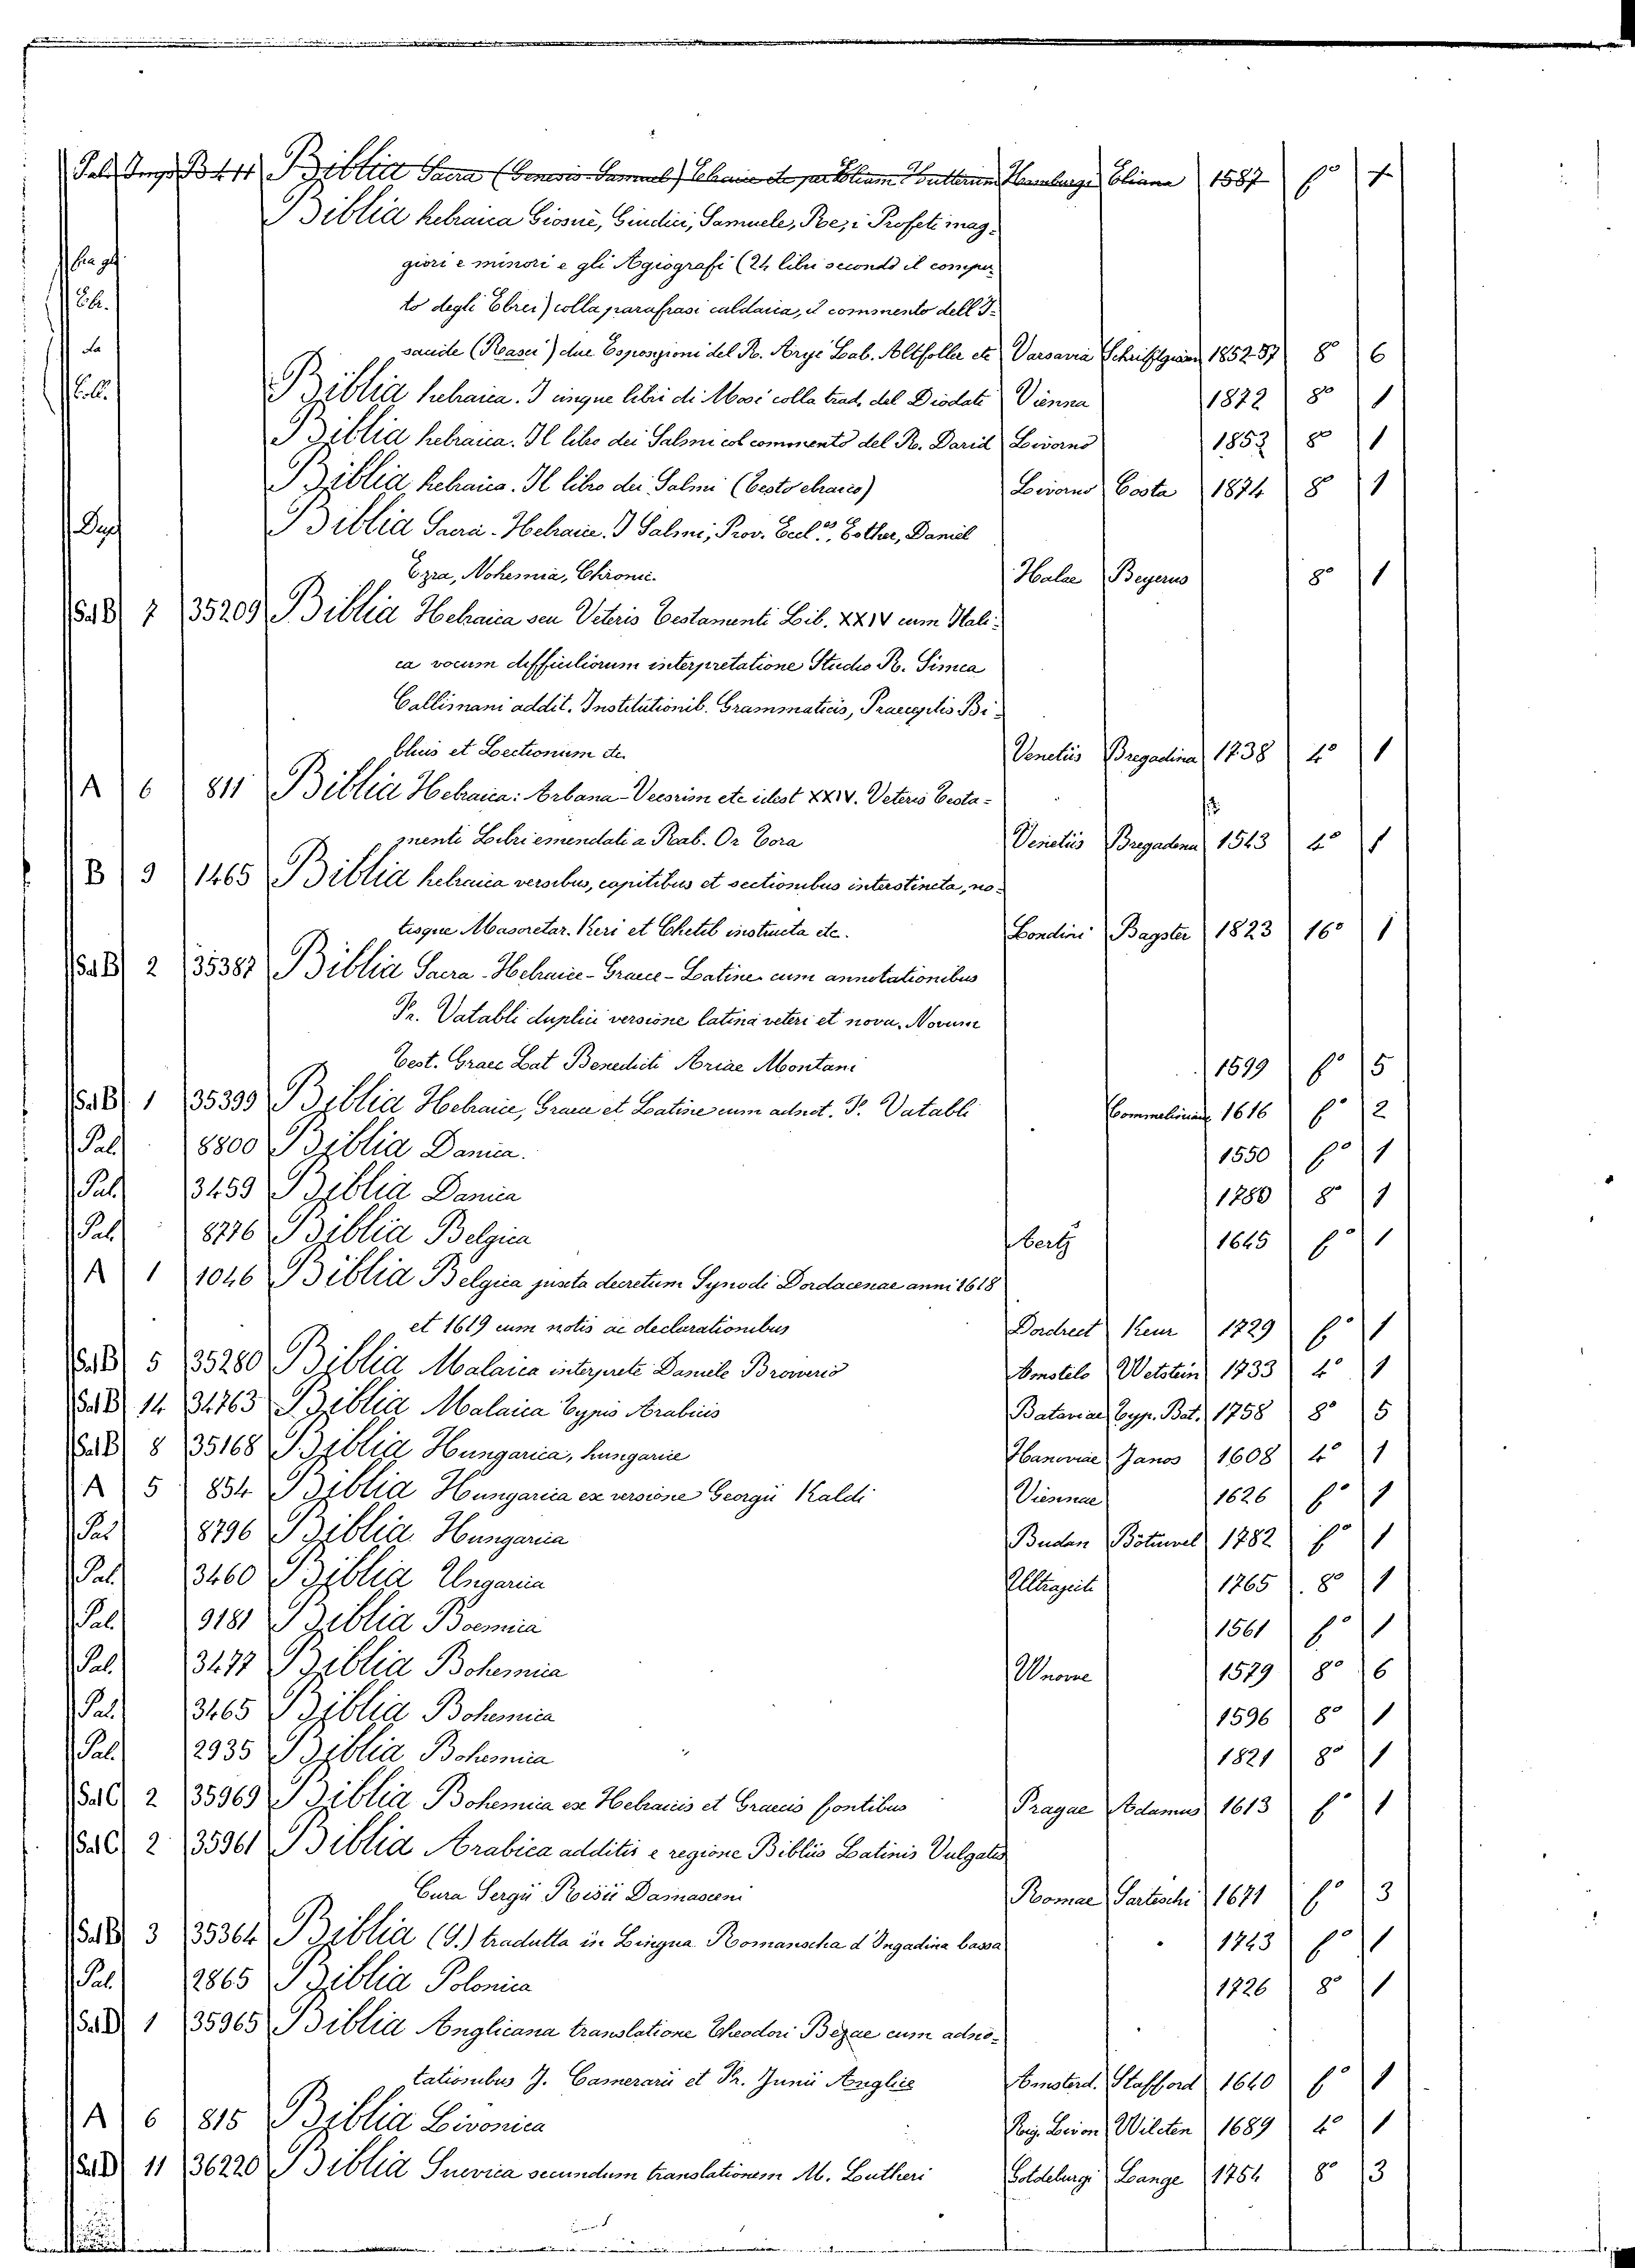 Biblia Sacra (Genesis-Samuel) Hamburgi Eliana 1587 fo
Biblia hebraica Giosuè, Giudici, Samuele, Re, i Profeti mag-
giori e minori e gli Agiografi (24 libri secondo il compu-
to degli Ebrei) colla parafrasi caldaica, il commento dell'I-
due Esposizioni del R. Arye Varsavia 1852-57 8o 6
Biblia hebraica. I cinque libri di Mosè colla trad. del Diodati Vienna 1872 8o 1
Biblia hebraica. Il libro dei Salmi col commento del R. David Livorno 1853 8o 1
Biblia hebraica. Il libro dei Salmi (testo ebraico) Livorno Costa 1874 8o 1
Dup Biblia Sacra-Hebraice. I Salmi, Prov. Esther, Daniel
Ezra, Nohemia, Chronic. Halae Beyerus 8o 1
Sal B 7 35209 Biblia Hebraica seu Veteris Testamenti Lib. XXIV cum Itali-
ca vocum difficiliorum interpretatione Studio R. Simca
Callimani addit. Institutionib. Grammaticis, Praeceptis Bi-
bliis et Lectionum etc. Venetiis Bregadina 1738 4o 1
A 6 811 Biblia Hebraica: Arbana-Veesrim etc idest XXIV. Veteris Testa-
menti Libri emendati a Rab. Or Tora Venetiis Bregadena 1543 4o 1
B 9 1465 Biblia hebraica versibus, capitibus et sectionibus interstincta, no-
tisque Masoretar. Keri et Chetib instructa etc. Londini Bagster 1823 16o 1
Sal B 2 35387 Biblia Sacra-Hebraice-Graece-Latine cum annotationibus
Fr. Vatabli duplici versione latina veteri et nova. Novum
Test. Graec Lat Benedicti Ariae Montani 1599 fo 5
Sal B 1 35399 Biblia Hebraice, Graece et Latine cum adnot. F. Vatabli 1616 fo 2
Pal 8800 Biblia Danica. 1550 fo 1
Pal 3459 Biblia Danica 1780 8o 1
Pal 8776 Biblia Belgica 1645 fo 1
A 1 1046 Biblia Belgica juxta decretum Synodi Dordacenae anni 1618
et 1619 cum notis ac declarationibus Dordrect Keur 1729 fo 1
Sal B 5 35280 Biblia Malaica interprete Daniele Browerio Amstelo Wetstein 1733 4o 1
Sal B 14 34763 Biblia Malaica Typis Arabicis Bataviae Typ. Bat. 1758 8o 5
Sal B 8 35168 Biblia Hungarica, hungarice Hanoviae Janos 1608 4o 1
A 5 854 Biblia Hungarica ex versione Georgii Kaldi Viennae 1626 fo 1
Pal 8796 Biblia Hungarica Budan 1782 fo 1
Pal 3460 Biblia Ungarica 1765 8o 1
Pal. 9181 Biblia Boemica 1561 fo 1
Pal. 3477 Biblia Bohemica 1579 8o 6
Pal. 3465 Biblia Bohemica 1596 8o 1
Pal. 2935 Biblia Bohemica 1821 8o 1
Sal C 2 35969 Biblia Bohemica ex Hebraicis et Graecis fontibus Pragae Adamus 1613 fo 1
Sal C 2 35961 Biblia Arabica additis e regione Bibliis Latinis Vulgatis
Cura Sergii Risii Damasceni Romae 1671 fo 3
Sal B 3 35364 Biblia (S.) tradutta in Lingua Romanscha d'Ingadina bassa 1743 fo 1
Pal. 2865 Biblia Polonica 1726 8o 1
Sal D 1 35965 Biblia Anglicana translatione Theodori Bezae cum adno-
tationibus J. Camerarii et Fr. Junii Anglice Amsterd. Stafford 1640 fo 1
A 6 815 Biblia Livonica Rig. Livon Wilcten 1689 4o 1
Sal D 11 36220 Biblia Suevica secundum translationem M. Lutheri Lange 1754 8o 3